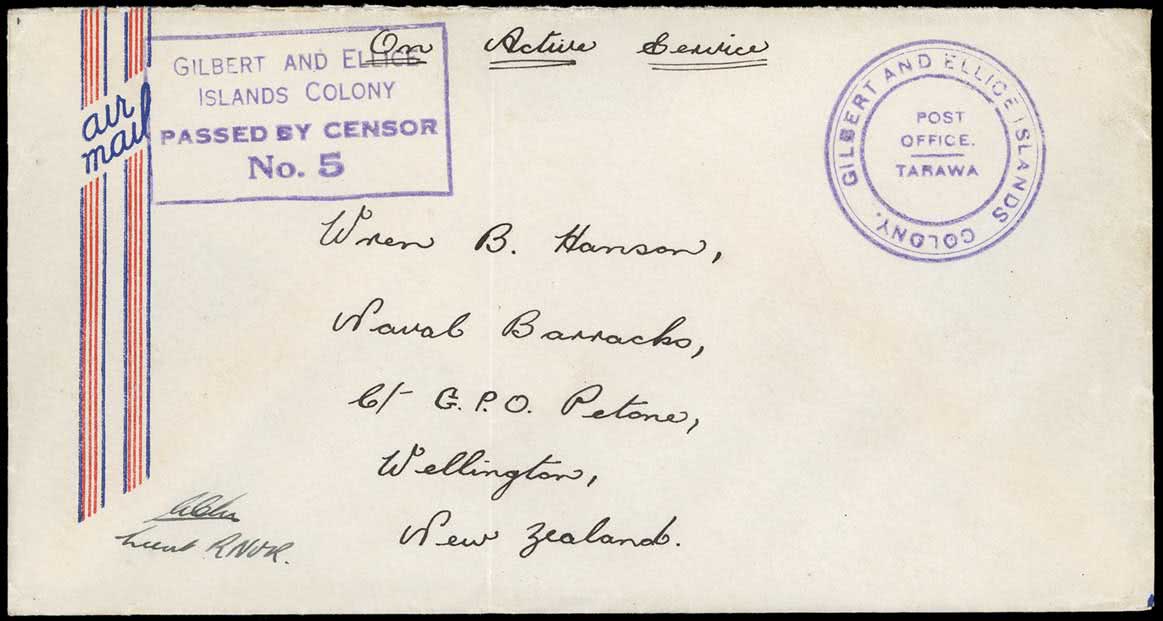 On Active Service
air
mail
GILBERT AND ELLICE
ISLANDS COLONY
PASSED BY CENSOR
No. 5
GILBERT AND ELLICE ISLANDS COLONY.
POST
OFFICE.
TARAWA
Wren B. Hanson,
Naval Barracks,
C/- G.P.O. Petone,
Wellington,
New Zealand.
Lieut RNVR.